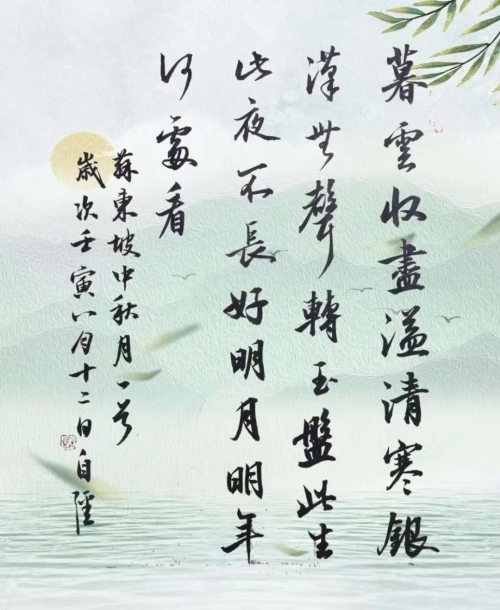 暮雲收盡溢清寒銀
漢無聲轉玉盤此生
此夜不長好明月明年
何處看
蘇東坡中秋月一首
歲次壬寅八月十二日自